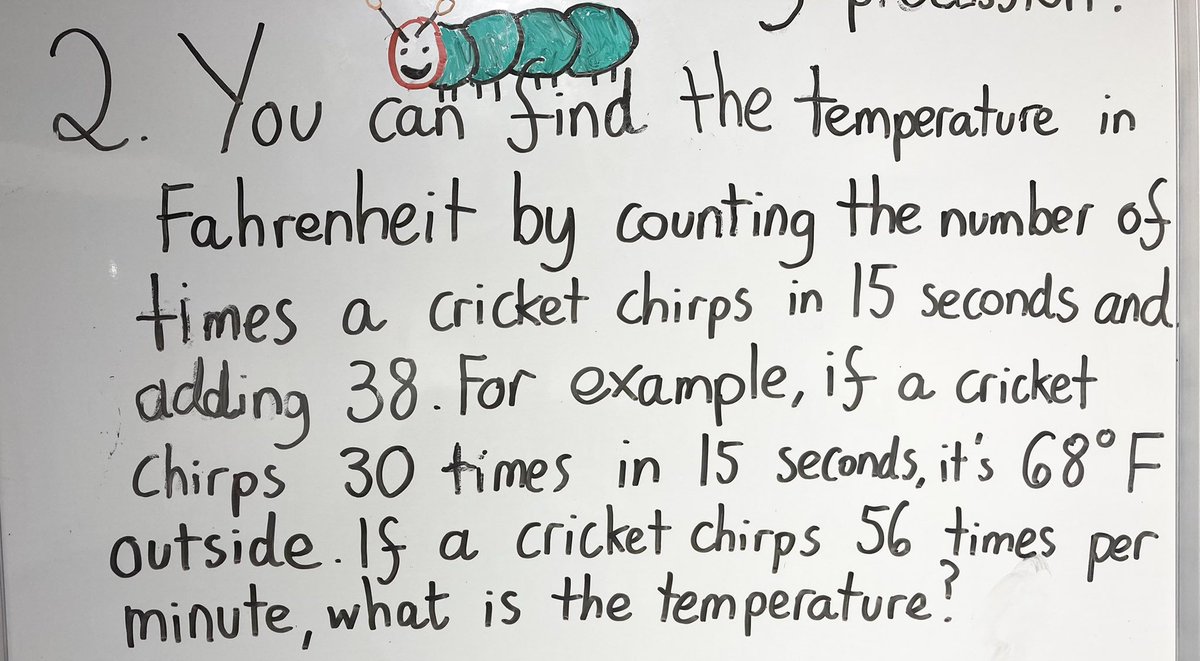 procession.
2. You can find the temperature in
Fahrenheit by counting the number of
times a cricket chirps in 15 seconds and
adding 38. For example, if a cricket
Chirps 30 times in 15 seconds, it's 68°F
outside. If a cricket chirps 56 times per
minute, what is the temperature?